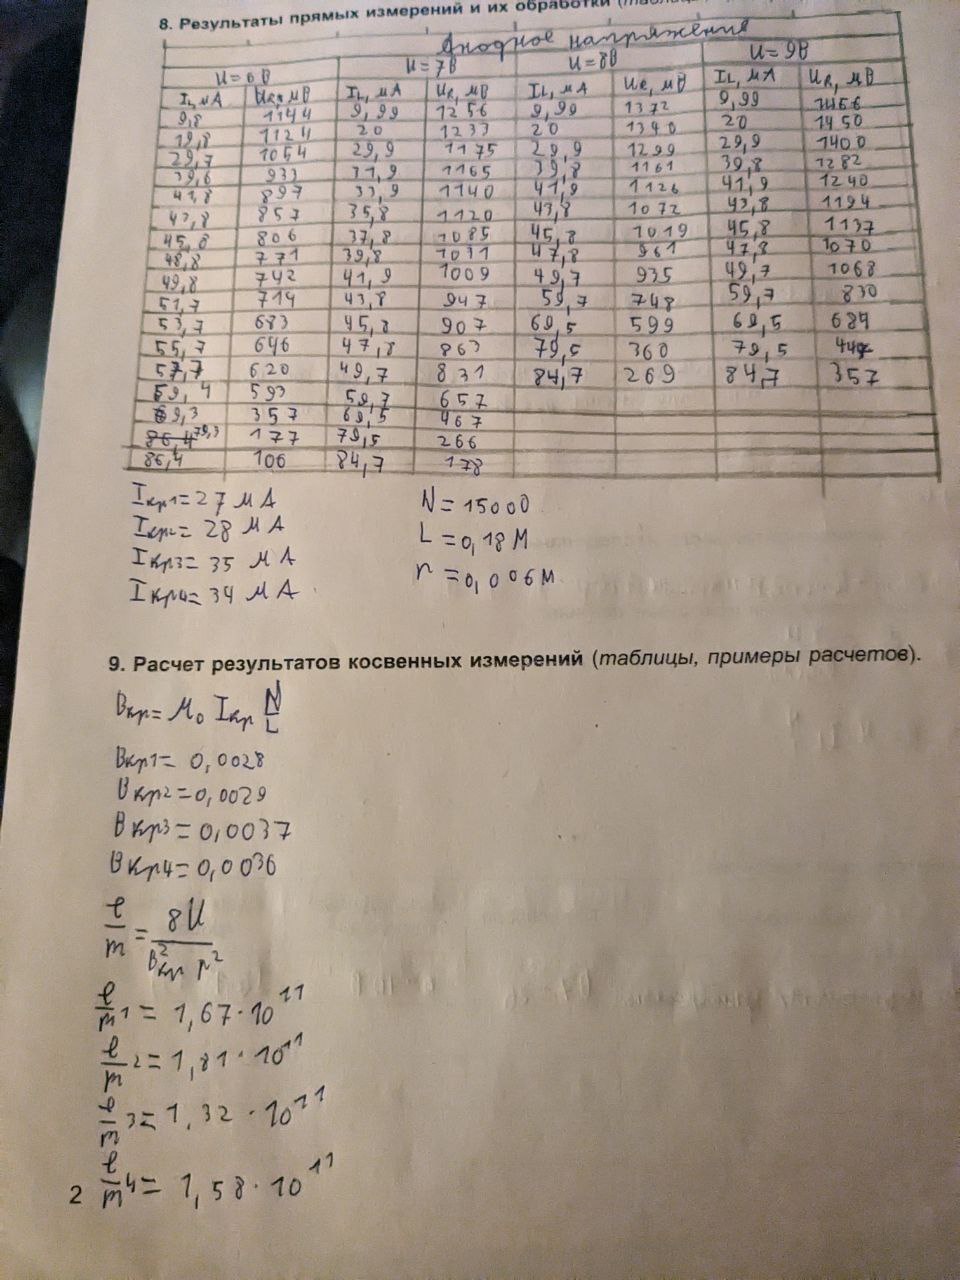 8. Результаты прямых измерений и их обработки
Анодное напряжения
U=6В U=7В U=8В U=9В
I_L, мА U_R, мВ I_L, мА U_R, мВ I_L, мА U_R, мВ I_L, мА U_R, мВ
9,8 1144 9,99 1256 9,99 1372 9,99 1456
19,8 1124 20 1233 20 1340 20 1450
29,7 1054 29,9 1175 29,9 1299 29,9 1400
39,6 933 31,9 1165 39,8 1161 39,8 1282
41,8 897 33,9 1140 41,9 1126 41,9 1240
43,8 857 35,8 1120 43,8 1072 43,8 1194
45,8 806 37,8 1085 45,8 1019 45,8 1137
48,8 771 39,8 1031 47,8 961 47,8 1070
49,8 742 41,9 1009 49,7 935 49,7 1068
51,7 714 43,8 947 59,7 748 59,7 830
53,7 683 45,8 907 69,5 599 69,5 684
55,7 646 47,8 863 79,5 360 79,5
57,7 620 49,7 831 84,7 269 84,7 357
59,4 593 59,7 657
69,3 357 69,5 467
86,4 79,3 177 79,5 266
86,4 106 84,7 178
Iкр1=27 мА N=15000
Iкр2= 28 мА L=0,18 м
Iкр3= 35 мА r=0,006м
Iкр4= 34 мА
9. Расчет результатов косвенных измерений (таблицы, примеры расчетов).
Bкр= μ₀ Iкр N/L
Bкр1= 0,0028
Bкр2=0,0029
Bкр3=0,0037
Bкр4=0,0036
e/m = 8U/(B²кр r²)
e/m 1 = 1,67·10¹¹
e/m 2= 1,81·10¹¹
e/m 3= 1,32·10¹¹
2 e/m 4= 1,58·10¹¹